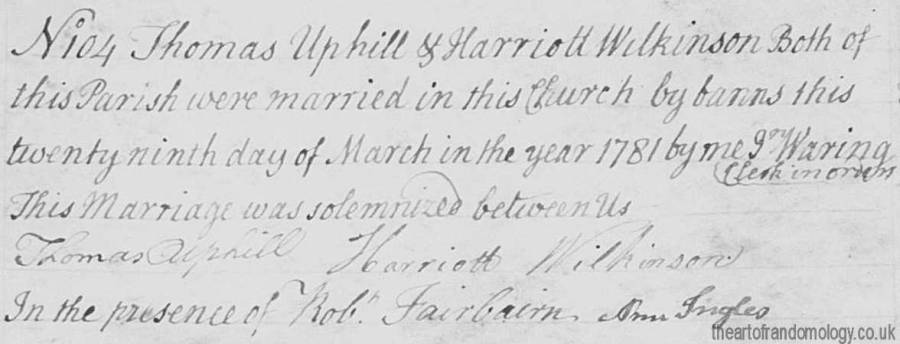 No 104 Thomas Uphill & Harriott Wilkinson Both of
this Parish were married in this Church by banns this
twenty ninth day of March in the year 1781 by me Jno Waring
Clerk in orders
This Marriage was solemnized between Us
Thomas Uphill Harriott Wilkinson
In the presence of Robt. Fairbairn, Ann Ingles
theartofrandomology.co.uk